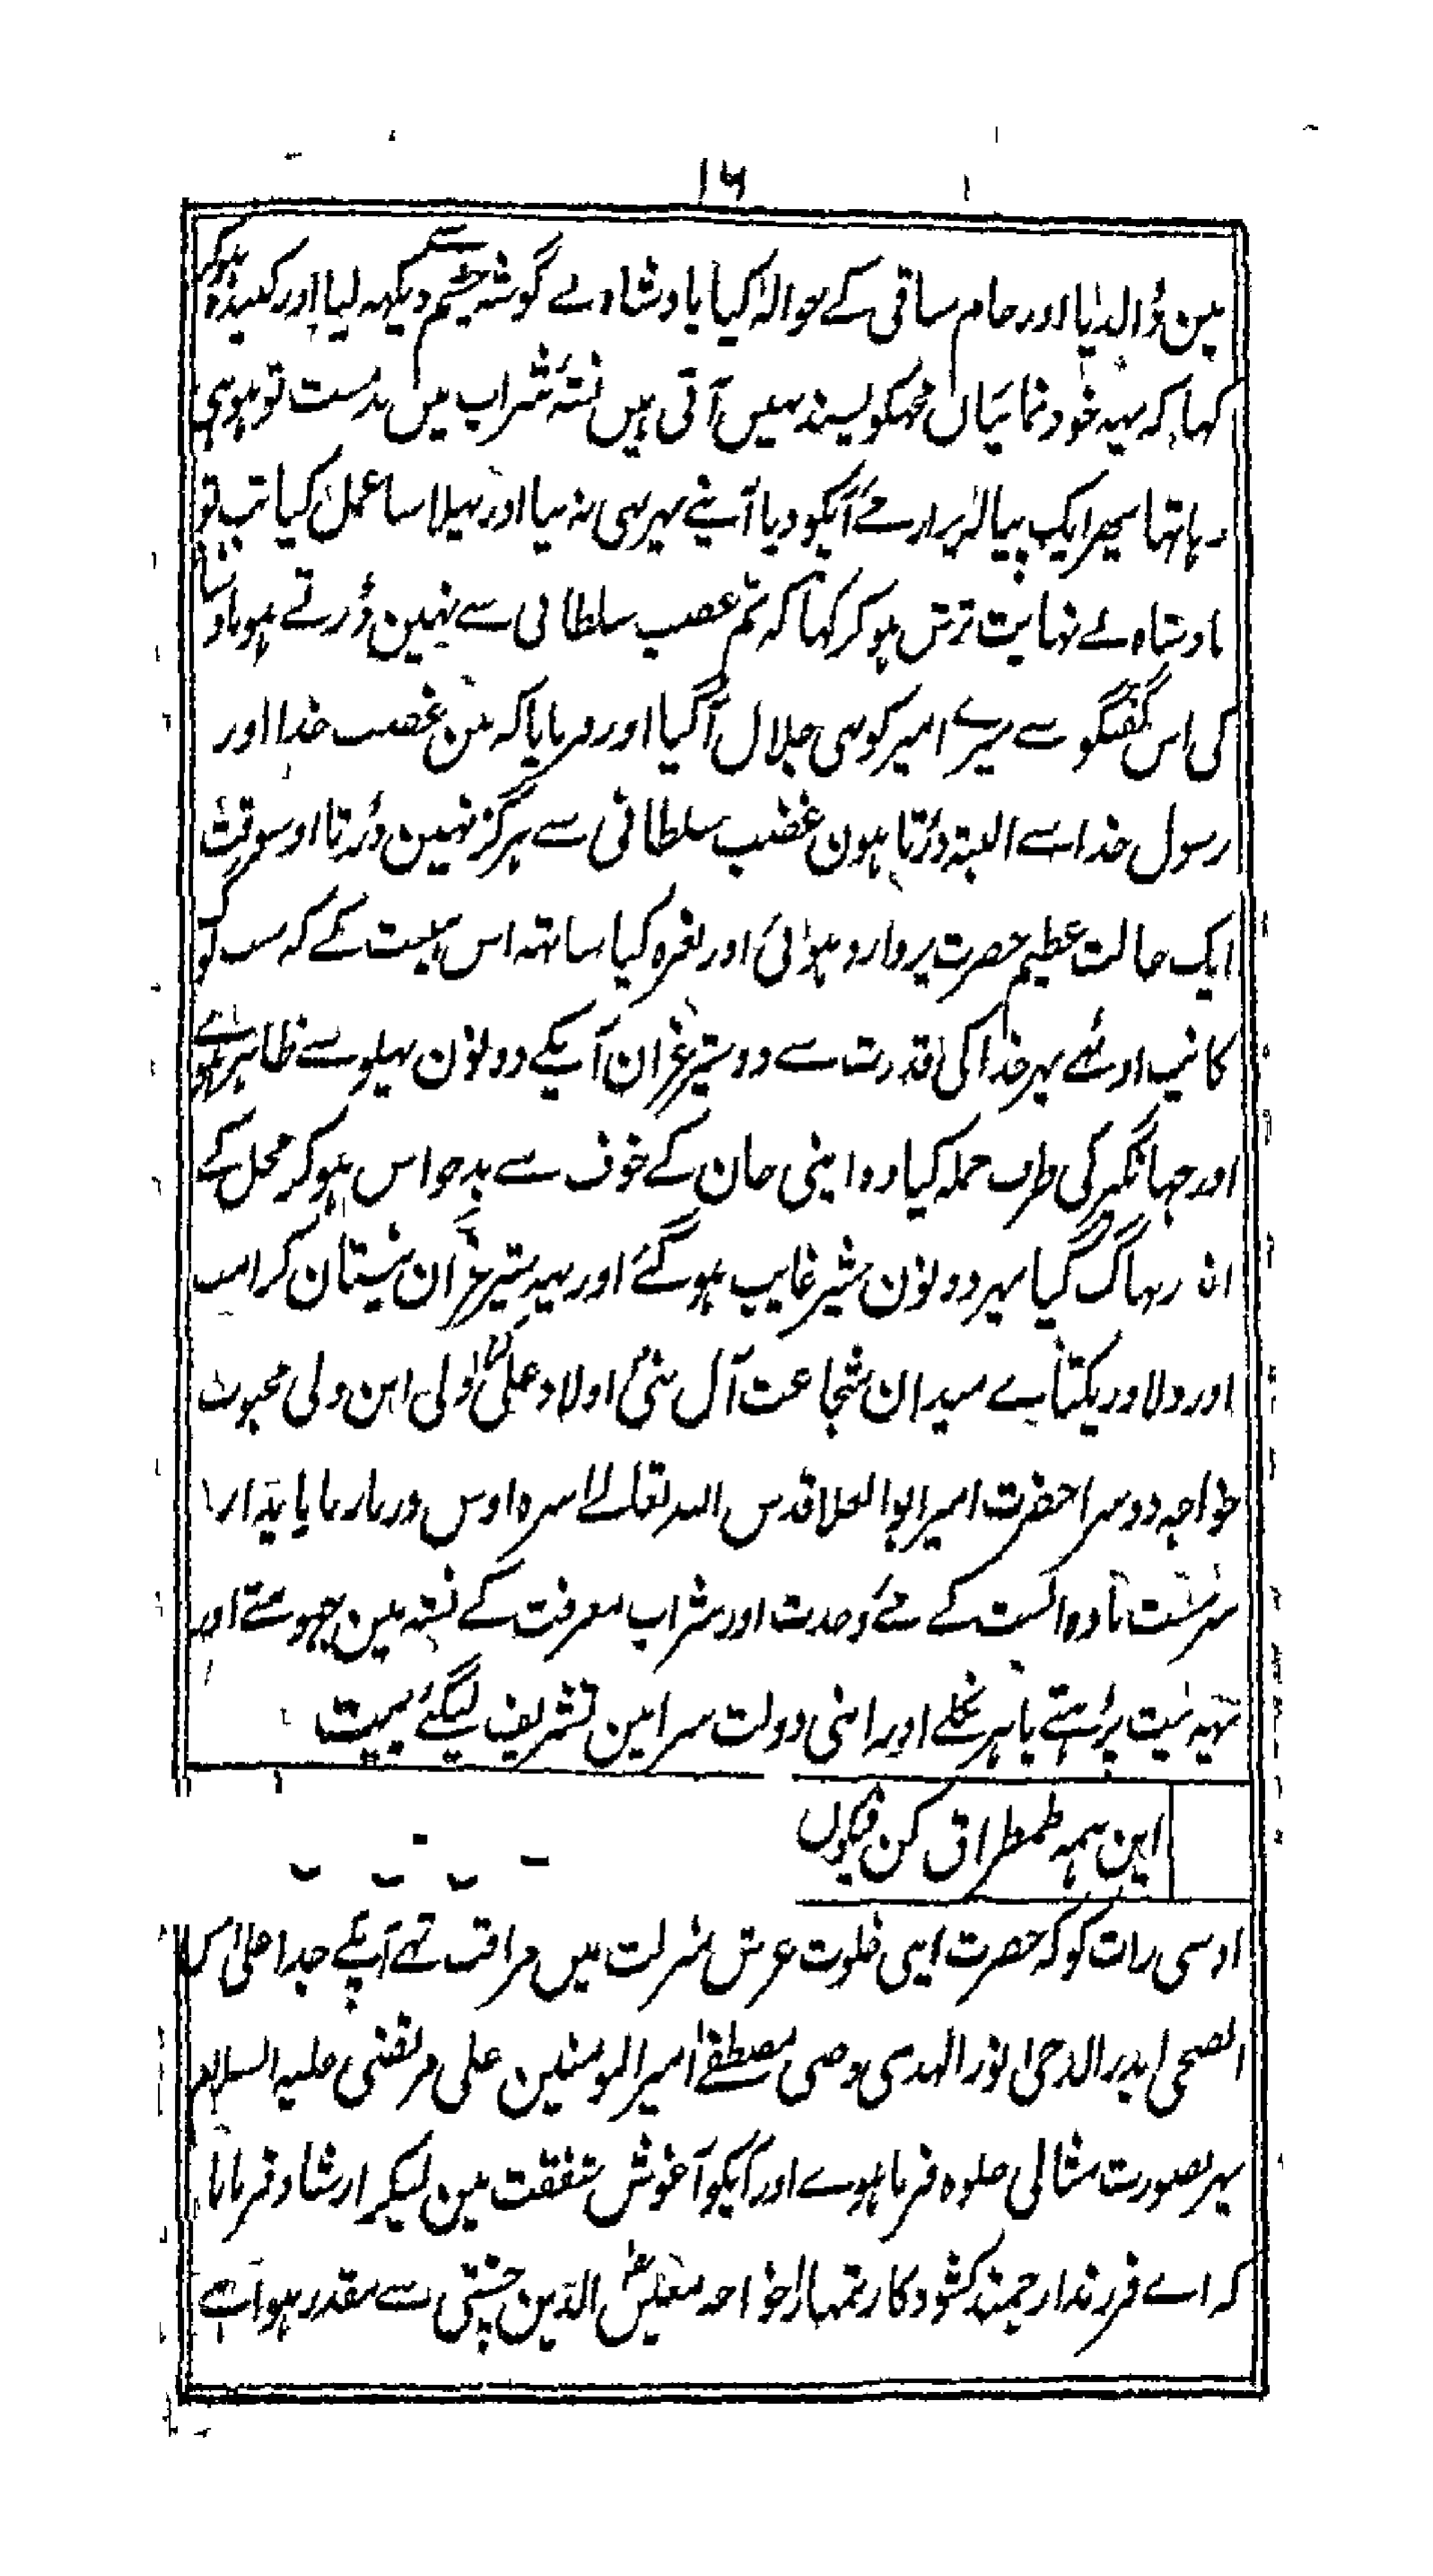 ۱۶
مین ڈالدیا اور جام ساقی کے حوالہ کیا بادشاہ نے گوشہ چشم سے دیکہہ لیا اور کبیدہ ہوکر
کہا کہ یہہ خود نمائیاں مجہکو پسند نہیں آتی ہیں نشۂ شراب میں بدمست تو ہو ہی
رہا تہا پھر ایک پیالہ برابر مے آپکو دیا آپنے پہر بہی نہ پیا اور پہلا سا عمل کیا تب تو
بادشاہ نے نہایت ترش ہوکر کہا کہ تم غضب سلطانی سے نہین ڈرتے ہو بادشاہ
کی اس گفتگو سے میرے امیر کو بہی جلال آگیا اور فرمایا کہ مین غضب خدا اور
رسول خدا سے البتہ ڈرتا ہون غضب سلطانی سے ہرگز نہین ڈرتا اوسوقت
ایک حالت عظیم حضرت پر وارد ہوئی اور نعرہ کیا ساتہہ اس ہیبت کے کہ سب لوگ
کانپ اوٹہے پہر خدا کی قدرت سے دو شیر غران آپکے دونون پہلو سے ظاہر ہوئے
اور جہانگیر کی طرف حملہ کیا وہ اپنی جان کے خوف سے بدحواس ہوکر محل کے
اندر بہاگ گیا پہر دونون شیر غایب ہوگئے اور یہہ شیر غران نیستان کرامت
اور دلاور یکتاے میدان شجاعت آل نبی اولاد علی ولی ابن ولی محبوب
خواجہ دوسرا حضرت امیر ابوالعلا قدس اللہ تعالے سرہ اوس دربار ناپایدار
سرمست بادہ الست کے مے وحدت اور شراب معرفت کے نشہ مین جہومتے اور
یہہ بیت پڑہتے باہر نکلے اور اپنی دولت سرا مین تشریف لیگئے بیت
این ہمہ طمطراق کن فیکوں
اوسی رات کو کہ حضرت اپنی خلوت عرش منزلت میں مراقب تہے آپکے جد اعلیٰ
الضحی بدر الدجی نور الہدی وصی مصطفے امیر المومنین علی مرتضی علیہ السلام
پہر بصورت مثالی جلوہ فرما ہوے اور آپکو آغوش شفقت مین لیکر ارشاد فرمایا
کہ اے فرزند ارجمند کشود کار تمہارا خواجہ معین الدین چشتی سے مقدر ہوا ہے